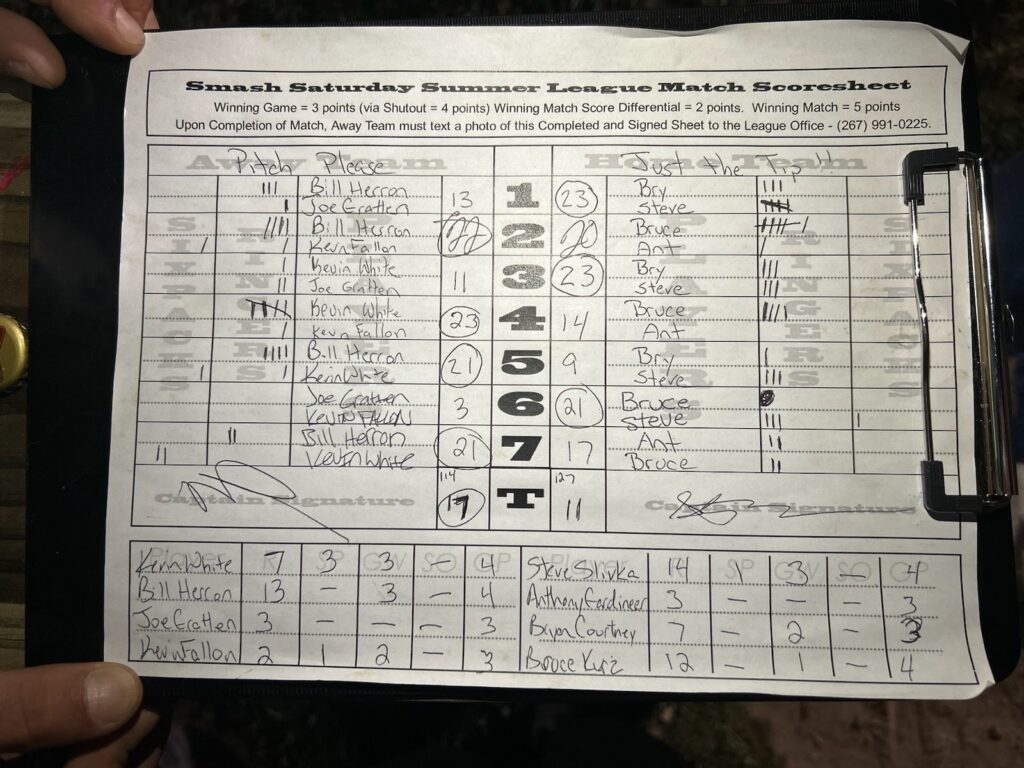 Smash Saturday Summer League Match Scoresheet
Winning Game = 3 points (via Shutout = 4 points) Winning Match Score Differential = 2 points. Winning Match = 5 points
Upon Completion of Match, Away Team must text a photo of this Completed and Signed Sheet to the League Office - (267) 991-0225.
Away Team Home Team
Pitch Please Just the Tip!!
Bill Herron 13 1 23 Bry
Joe Gratten Steve
Bill Herron 22 2 20 Bruce
Kevin Fallon Ant
Kevin White 11 3 23 Bry
Joe Gratten Steve
Kevin White 23 4 14 Bruce
Kevin Fallon Ant
Bill Herron 21 5 9 Bry
Kevin White Steve
Joe Gratten 3 6 21 Bruce
KEVIN FALLON Steve
Bill Herron 21 7 17 Ant
Kevin White Bruce
SIXPACKS RINGERS PLAYERS RINGERS SIXPACKS
114 127
Captain Signature 17 T 11 Captain Signature
Player R SP GW SO GP Player R SP GW SO GP
Kevin White 7 3 3 — 4 Steve Slivka 14 1 3 — 4
Bill Herron 13 — 3 — 4 Anthony Gardineer 3 — — — 3
Joe Gratten 3 — — — 3 Bryan Courtney 7 — 2 — 3
Kevin Fallon 2 1 2 — 3 Bruce Kurz 12 — 1 — 4